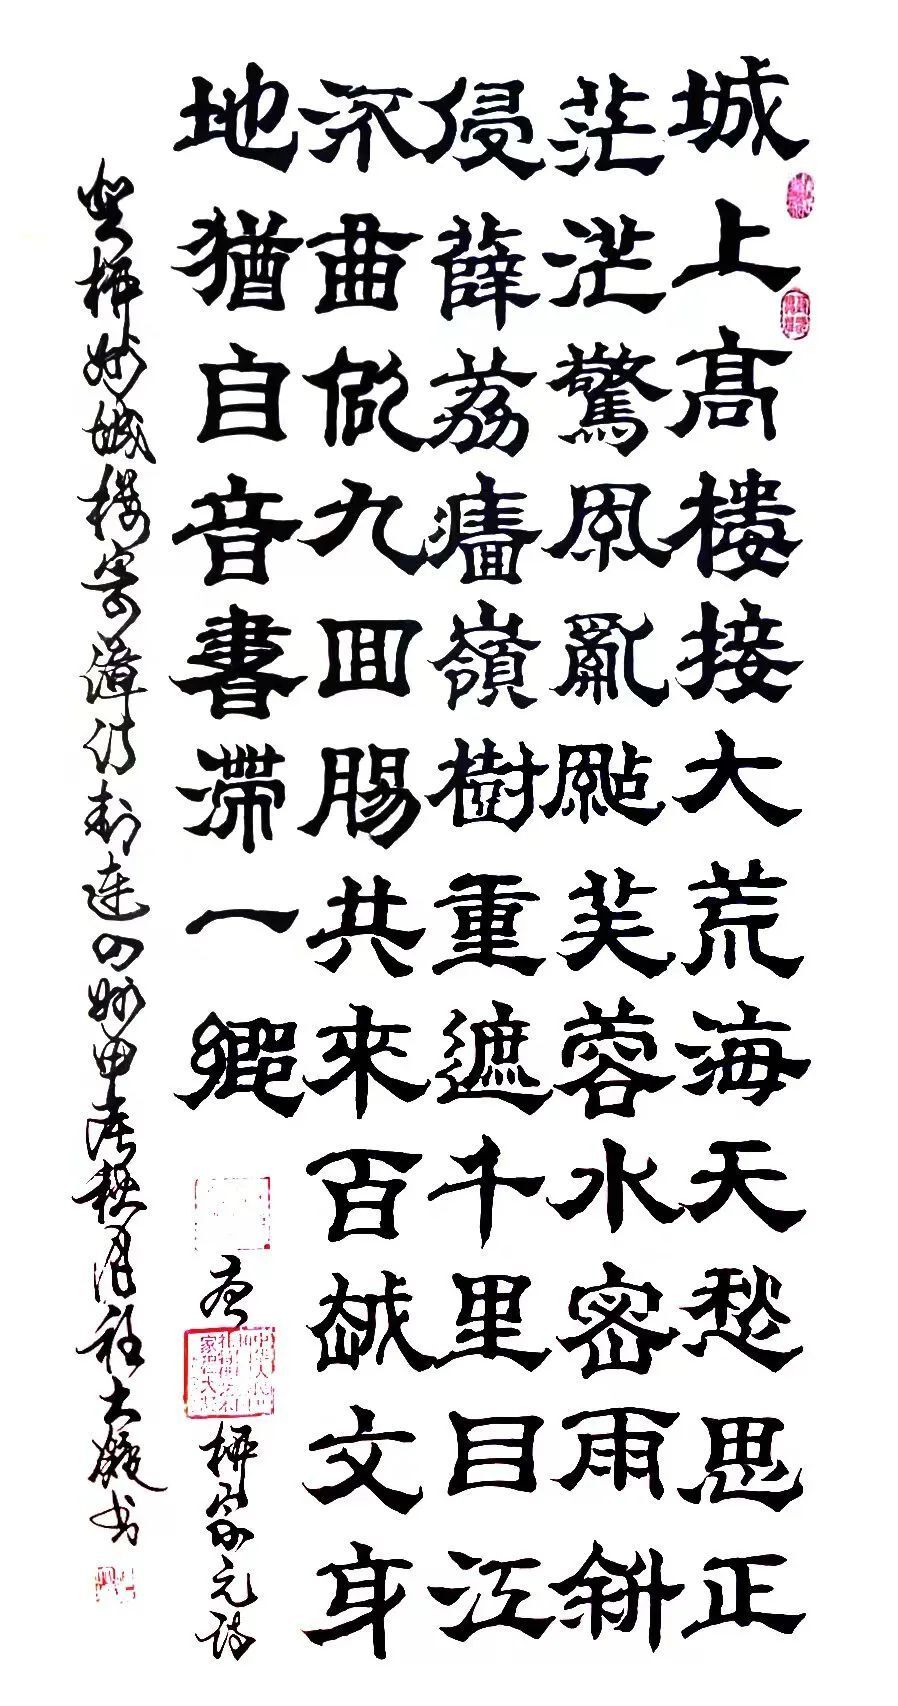 城上髙樓接大荒海天愁思正
茫茫驚風亂颭芙蓉水密雨斜
侵薜荔牆嶺樹重遮千里目江
流曲似九囬腸共來百越文身
地猶自音書滯一鄉
唐柳宗元诗
登柳州城楼寄漳汀封连四州甲辰秋月程大书